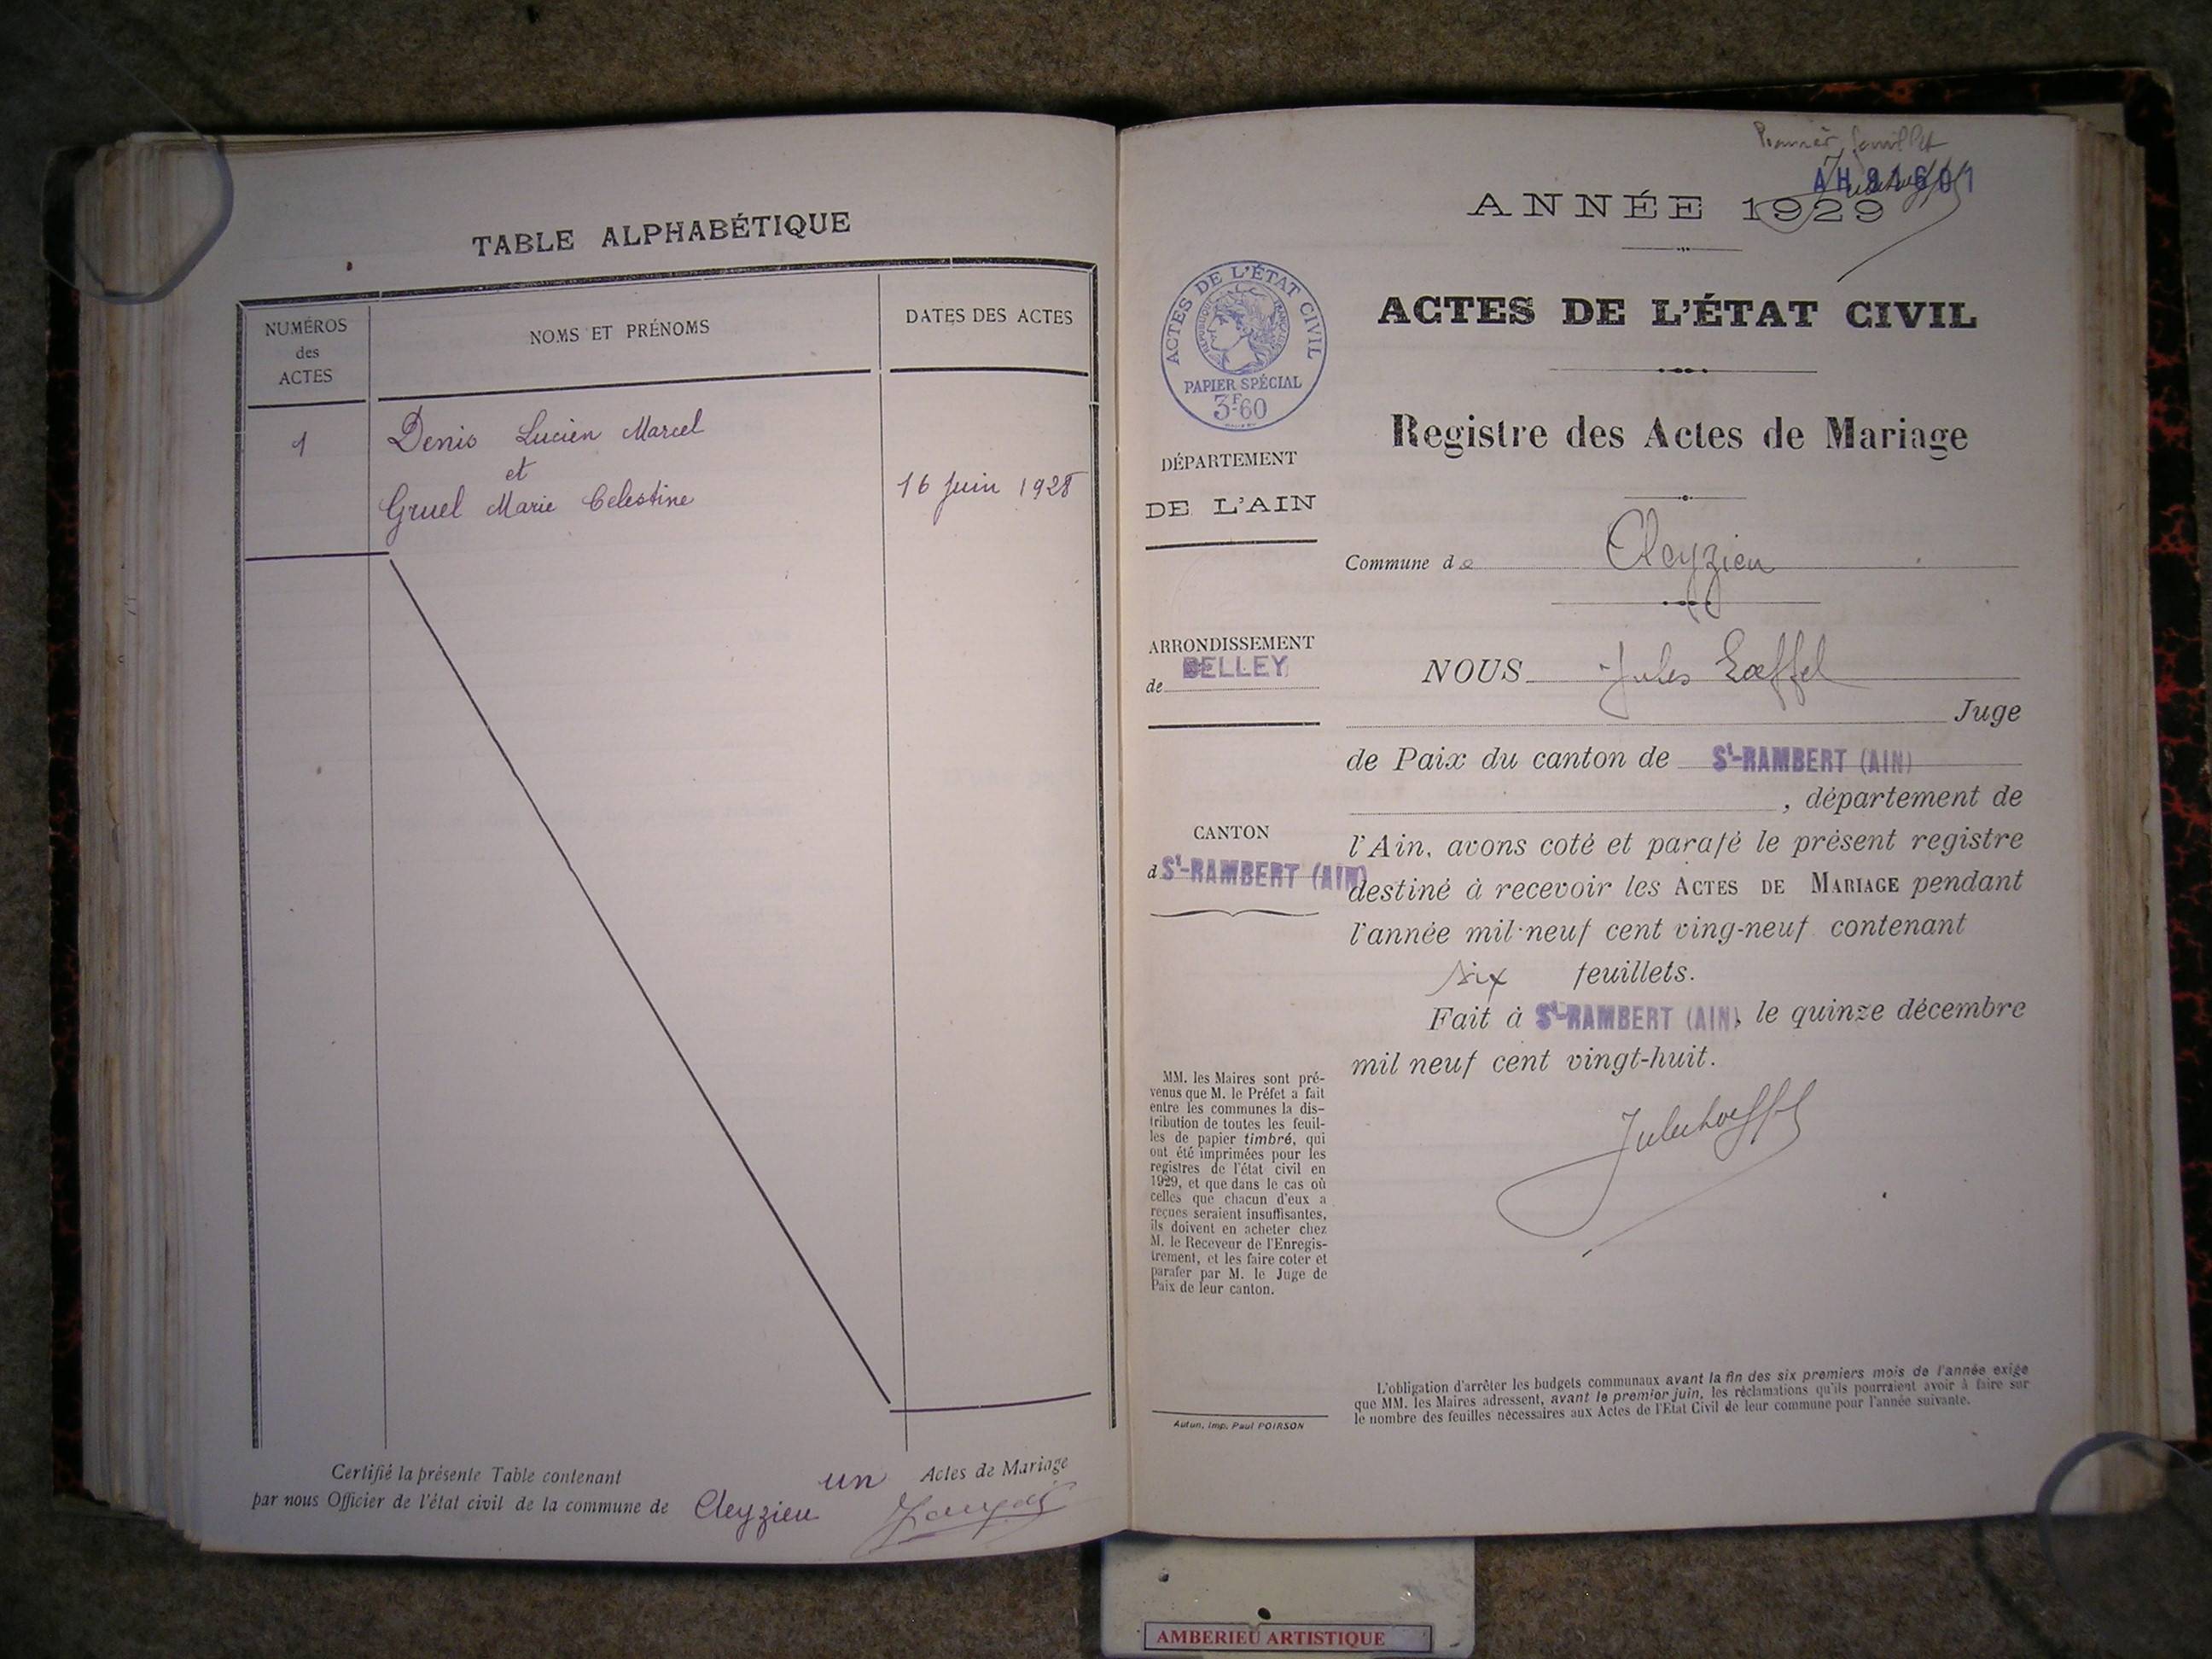 TABLE ALPHABÉTIQUE
NUMÉROS
des
ACTES
NOMS ET PRÉNOMS
DATES DES ACTES
1
Denis Lucien Marcel
et
Gruel Marie Celestine
16 Juin 1928
Certifié la présente Table contenant un Actes de Mariage
par nous Officier de l'état civil de la commune de Cleyzieu
Premier feuillet
AH
ANNÉE 1929
ACTES DE L'ÉTAT CIVIL
RÉPUBLIQUE FRANÇAISE
PAPIER SPÉCIAL
3F60
ACTES DE L'ÉTAT CIVIL
Registre des Actes de Mariage
DÉPARTEMENT
DE L'AIN
Commune de Cleyzieu
ARRONDISSEMENT
de BELLEY
CANTON
d St-RAMBERT (AIN)
NOUS Jules Loeffel
Juge
de Paix du canton de St-RAMBERT (AIN)
, département de
l'Ain, avons coté et parafé le présent registre
destiné à recevoir les ACTES DE MARIAGE pendant
l'année mil-neuf cent ving-neuf contenant
six feuillets.
Fait à St-RAMBERT (AIN), le quinze décembre
mil neuf cent vingt-huit.
MM. les Maires sont pré-
venus que M. le Préfet a fait
entre les communes la dis-
tribution de toutes les feuil-
les de papier timbré, qui
ont été imprimées pour les
registres de l'état civil en
1929, et que dans le cas où
celles que chacun d'eux a
reçues seraient insuffisantes,
ils doivent en acheter chez
M. le Receveur de l'Enregis-
trement, et les faire coter et
parafer par M. le Juge de
Paix de leur canton.
Autun, Imp. Paul POIRSON
L'obligation d'arrêter les budgets communaux avant la fin des six premiers mois de l'année exige
que MM. les Maires adressent, avant le premier juin, les réclamations qu'ils pourraient avoir à faire sur
le nombre des feuilles nécessaires aux Actes de l'Etat Civil de leur commune pour l'année suivante.
AMBERIEU ARTISTIQUE